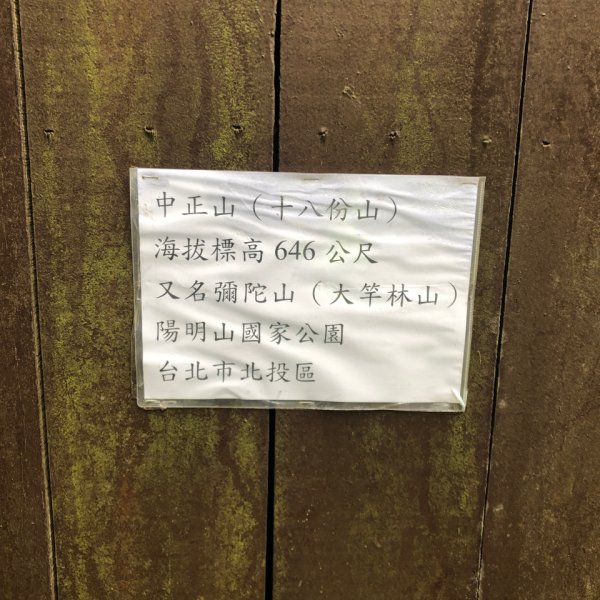 中正山（十八份山）
海拔標高 646 公尺
又名彌陀山（大竿林山）
陽明山國家公園
台北市北投區